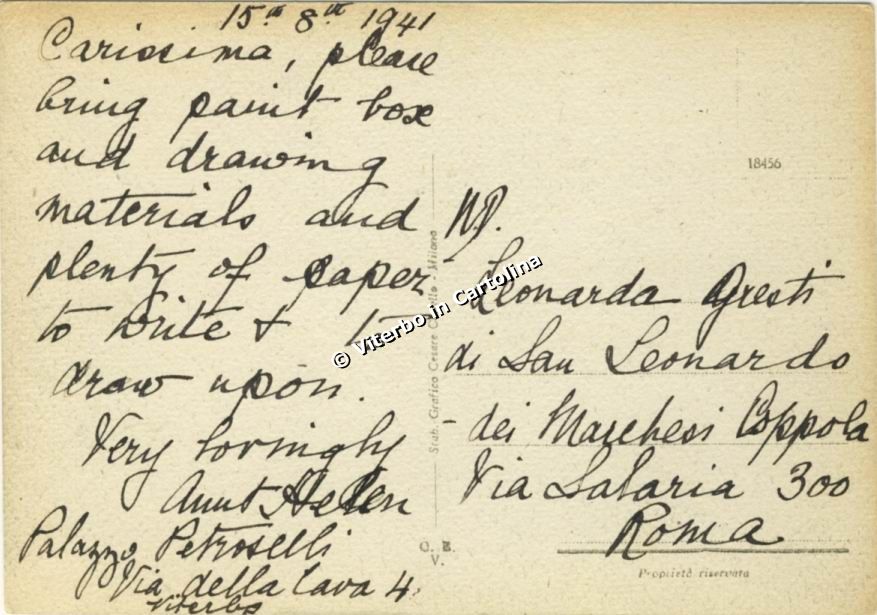 15th 8th 1941
Carissima, please
bring paint box
and drawing
materials and
plenty of paper
to write & to
draw upon.
Very lovingly
Aunt Helen
Palazzo Petroselli
Via della Cava 4
Viterbo
18456
Leonarda Gresti
di San Leonardo
dei Marchesi Coppola
Via Salaria 300
Roma
Proprietà riservata
Stab. Grafico Cesare Milano
© Viterbo in Cartolina